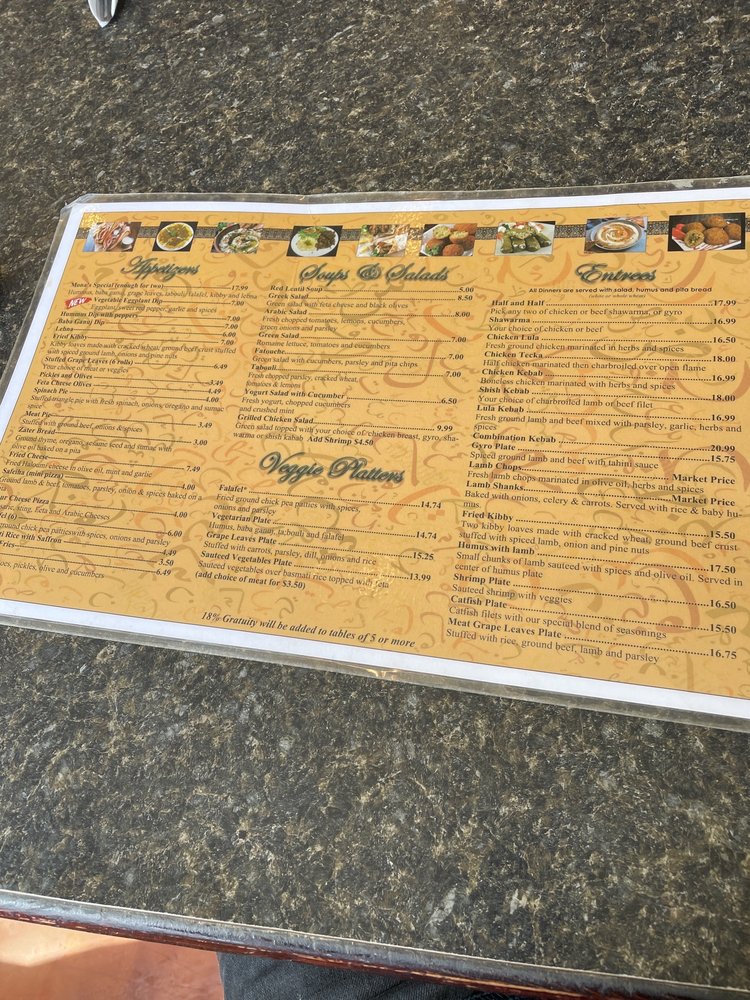 Appetizers
Mona's Special (enough for two) 17.99
Humus, baba ganuj, grape leaves, tabouli, falafel, kibby and lebna
NEW
Vegetable Eggplant Dip 7.00
Eggplant, sweet red pepper, garlic and spices
Hummus Dip with peppers 7.00
Baba Ganuj Dip 7.00
Lebna 6.00
Fried Kibby 7.00
Kibby loaves made with cracked wheat, ground beef crust stuffed
with spiced ground lamb, onions and pine nuts
Stuffed Grape Leaves (6 rolls) 6.49
Your choice of meat or veggies
Pickles and Olives 3.49
Feta Cheese Olives 4.49
Spinach Pie 4.00
Stuffed triangle pie with fresh spinach, onions, oregano and sumac
spice
Meat Pie 3.49
Stuffed with ground beef, onions & spices
Zater Bread 3.00
Ground thyme, oregano, sesame seed and sumac with
olive oil baked on a pita
Fried Cheese 7.49
Fried Haloumi cheese in olive oil, mint and garlic
Safeiha (meat pizza) 4.00
lamb & beef, tomatoes, parsley, onion & spices baked on
Cheese Pizza 4.00
garlic, sting, feta and Arabic Cheeses
(6) 6.00
ground chick pea patties with spices, onions and parsley
Rice with Saffron 4.49
Fries 3.50
pickles, olive and cucumbers 6.49
Soups & Salads
Red Lentil Soup 5.00
Greek Salad 8.50
Green salad with feta cheese and black olives
Arabic Salad 8.00
Fresh chopped tomatoes, lemons, cucumbers,
green onions and parsley
Green Salad 7.00
Romaine lettuce, tomatoes and cucumbers
Fatouche 7.00
Green salad with cucumbers, parsley and pita chips
Tabouli 7.00
Fresh chopped parsley, cracked wheat,
tomatoes & lemons
Yogurt Salad with Cucumber 6.50
Fresh yogurt, chopped cucumbers
and crushed mint
Grilled Chicken Salad 9.99
Green salad topped with your choice of chicken breast, gyro, sha-
warma or shish kabab Add Shrimp $4.50
Veggie Platters
Falafel* 14.74
Fried ground chick pea patties with spices,
onions and parsley
Vegetarian Plate 14.74
Humus, baba ganuj, tabouli and falafel
Grape Leaves Plate 15.25
Stuffed with carrots, parsley, dill, onions and rice
Sauteed Vegetables Plate 13.99
Sauteed vegetables over basmati rice topped with feta
(add choice of meat for $3.50)
Entrees
All Dinners are served with salad, humus and pita bread
(white or whole wheat)
Half and Half 17.99
Pick any two of chicken or beef shawarma, or gyro
Shawarma 16.99
Your choice of chicken or beef
Chicken Lula 16.50
Fresh ground chicken marinated in herbs and spices
Chicken Tecka 18.00
Half chicken marinated then charbroiled over open flame
Chicken Kebab 16.99
Boneless chicken marinated with herbs and spices
Shish Kebab 18.00
Your choice of charbroiled lamb or beef filet
Lula Kebab 16.99
Fresh ground lamb and beef mixed with parsley, garlic, herbs and
spices
Combination Kebab 20.99
Gyro Plate 15.75
Spiced ground lamb and beef with tahini sauce
Lamb Chops Market Price
Fresh lamb chops marinated in olive oil, herbs and spices
Lamb Shanks Market Price
Baked with onions, celery & carrots. Served with rice & baby hu-
mus
Fried Kibby 15.50
Two kibby loaves made with cracked wheat, ground beef crust-
stuffed with spiced lamb, onion and pine nuts
Humus with lamb 17.50
Small chunks of lamb sauteed with spices and olive oil. Served in
center of humus plate
Shrimp Plate 16.50
Sauteed shrimp with veggies
Catfish Plate 15.50
Catfish filets with our special blend of seasonings
Meat Grape Leaves Plate 16.75
Stuffed with rice, ground beef, lamb and parsley
18% Gratuity will be added to tables of 5 or more